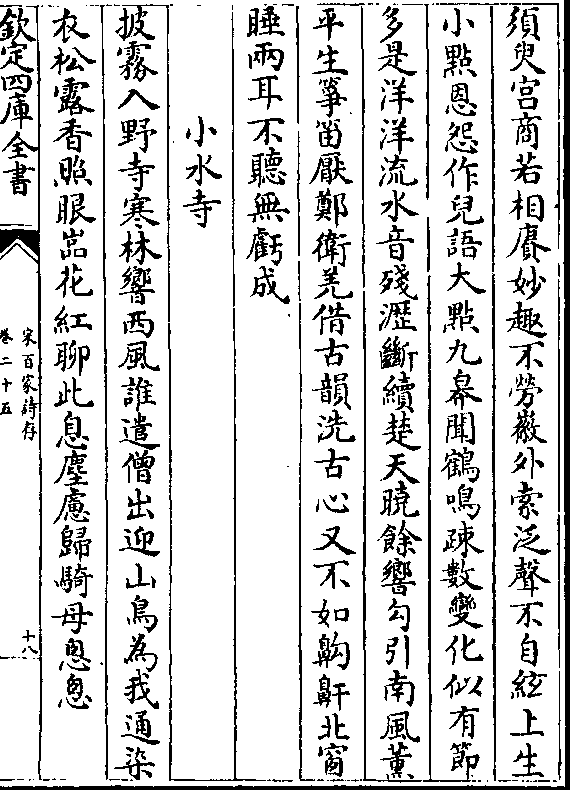 須臾宫商若相賡妙趣不勞嶶外索泛聲不自絃上生
小點恩怨作兒語大點九皋聞鶴鳴疎數變化似有節
多是洋洋流水音殘瀝斷續楚天曉餘響勾引南風薫
平生箏笛厭鄭衛羌借古韻洗古心又不如齁鼾北窗
睡兩耳不聽無虧成
小水寺
披霧入野寺寒林響西風誰遣僧出迎山鳥為我通染
衣松露香照眼嵓花紅聊此息塵慮歸騎毋怱怱
欽定四庫全書
宋百家詩存
卷二十五
十八